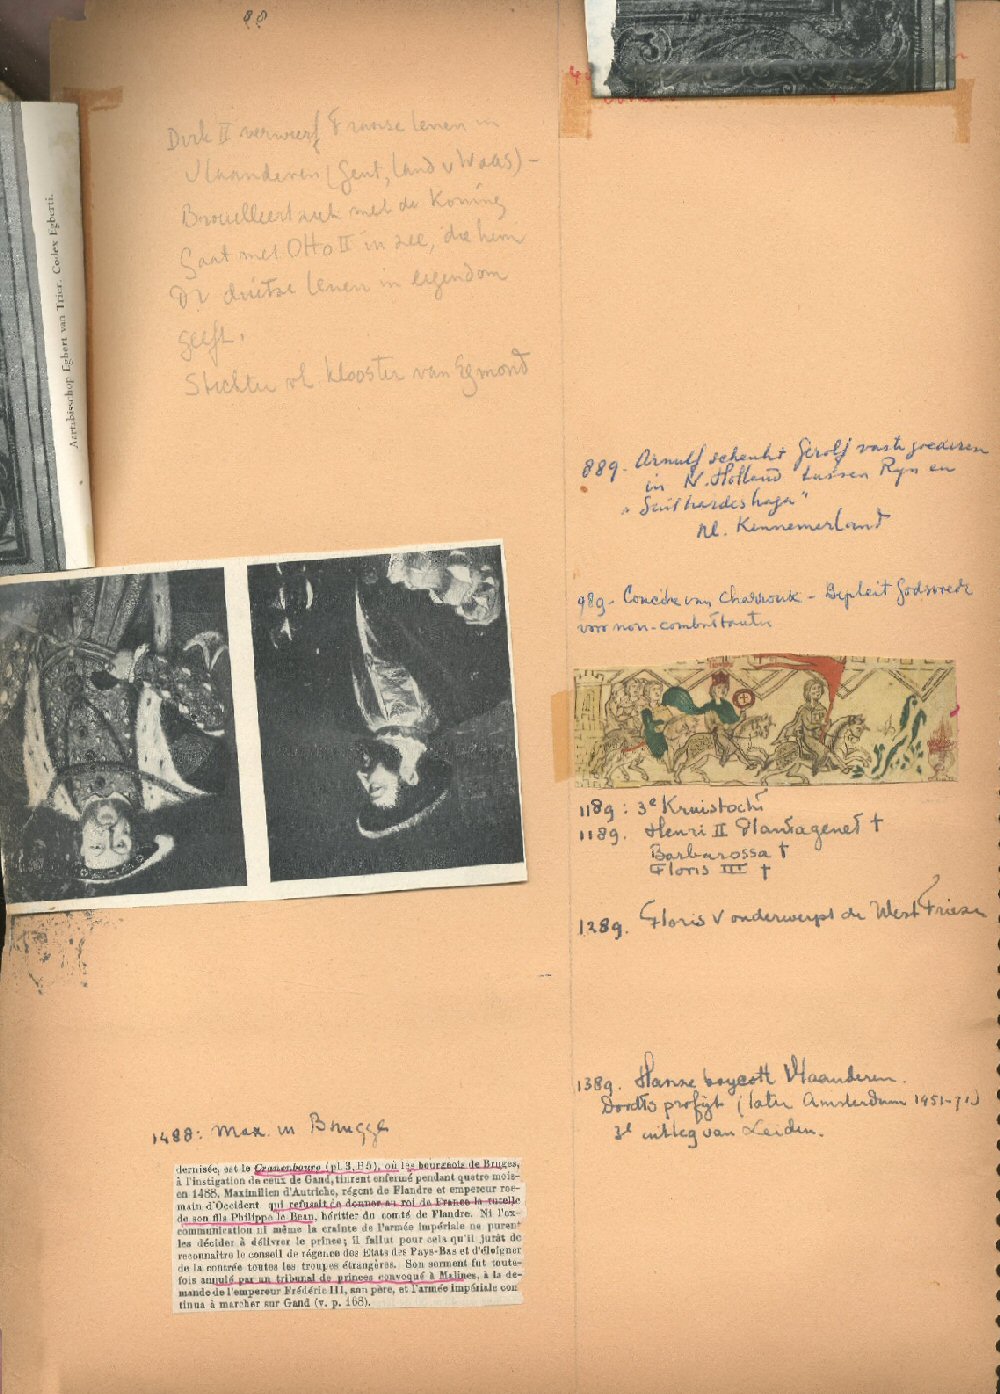 88
Dirk II verwerft Franse lenen in
Vlaanderen (Gent, land v Waas) -
Brouilleert zich met de Koning
Gaat met Otto II in zee, die hem
De duitse lenen in eigendom
geeft.
Stichter vh. klooster van Egmond
Aartsbisschop Egbert van Trier. Codex Egberti.
1488: Max. in Brugge
dernisée, est le Cranenbourg (pl. 3, B 5), où les bourgeois de Bruges,
à l'instigation de ceux de Gand, tinrent enfermé pendant quatre mois
en 1488, Maximilien d'Autriche, régent de Flandre et empereur ro-
main d'Occident qui refusait de donner au roi de France la tutelle
de son fils Philippe le Beau, héritier du comté de Flandre. Ni l'ex-
communication ni même la crainte de l'armée impériale ne purent
les décider à délivrer le prince; il fallut pour cela qu'il jurât de
reconnaître le conseil de régence des Etats des Pays-Bas et d'éloigner
de la contrée toutes les troupes étrangères. Son serment fut toute-
fois annulé par un tribunal de princes convoqué à Malines, à la de-
mande de l'empereur Frédéric III, son père, et l'armée impériale con
tinua à marcher sur Gand (v. p. 168).
889. Arnulf schenkt Gerolf vaste goederen
in N. Holland tussen Rijn en
"Suithardeshaga"
nl. Kennemerland
989 - Concilie van Charroux - Bepleit Godsvrede
voor non-combattanten
1189: 3e Kruistocht
1189. Henri II Plantagenet †
Barbarossa †
Floris III †
1289. Floris V onderwerpt de West Friezen
1389. Hanze boycott Vlaanderen.
Dordts profijt (later Amsterdam 1451-71)
3e uitleg van Leiden.